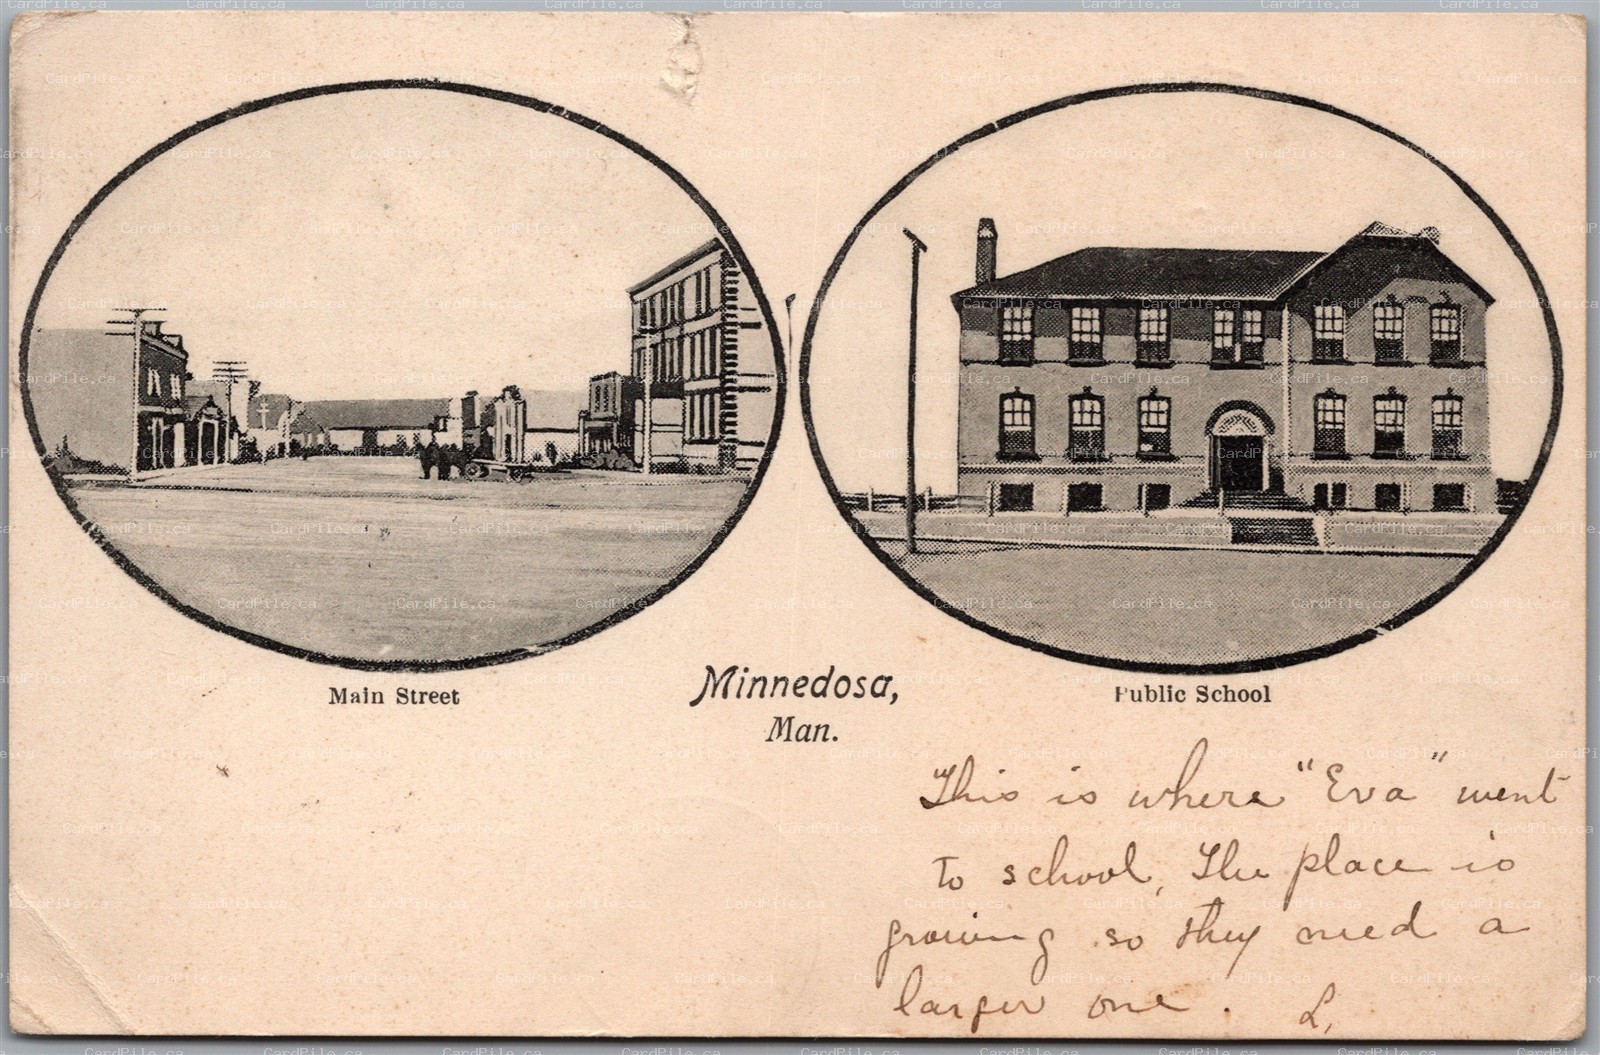 Main Street
Minnedosa,
Man.
Public School
This is where "Eva" went
to school, The place is
growing so they need a
larger one. L.
CardPile.ca